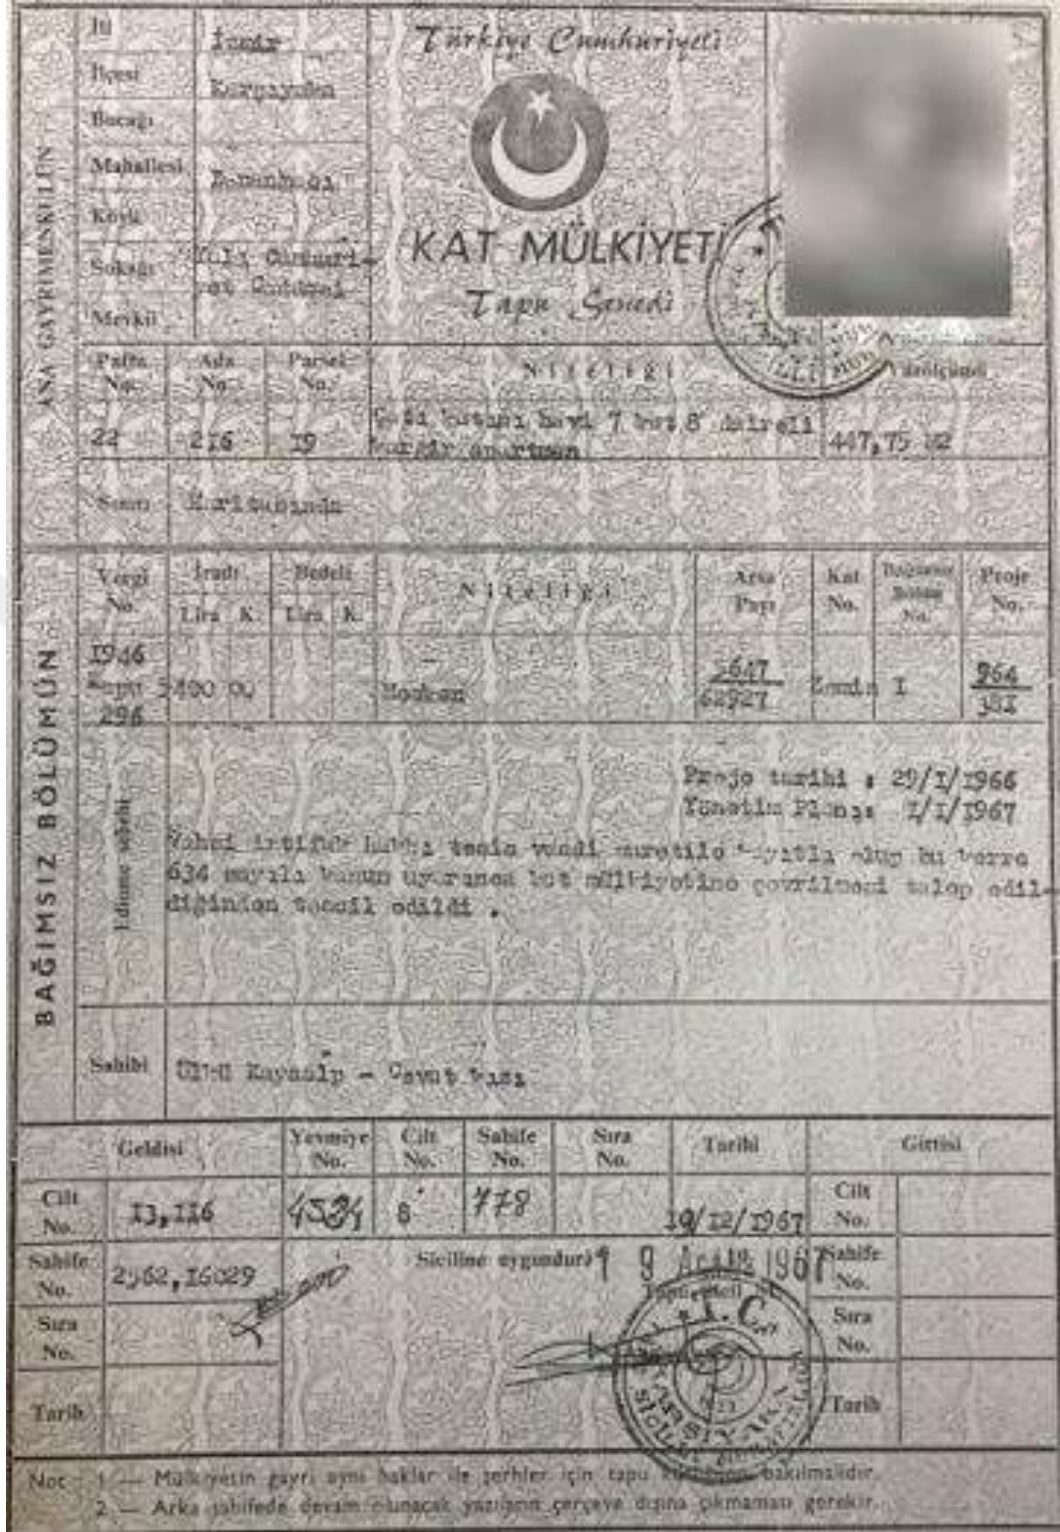 ANA GAYRIMENKULÜN
İli
İzmir
İlçesi
Karşıyaka
Bucağı
Mahallesi
Köyü
Sokağı
Yalı Cumhuri-
yet Caddesi
Mevkii
Türkiye Cumhuriyeti
KAT MÜLKİYETİ
Tapu Senedi
Pafta No. Ada No. Parsel No. Niteliği Yüzölçümü
22 216 19 Çatı katını havi 7 kat 8 daireli kargir apartman 447,75 M2
Sınırı Haritasında
BAĞIMSIZ BÖLÜMÜN
Vergi No. İradı Lira K. Bedeli Lira K. Niteliği Arsa Payı Kat No. Bağımsız Bölüm No. Proje No.
1946 Kapu 296 5400 00 Mesken 5647/62927 Zemin I 964/381
Edinme sebebi
Proje tarihi : 29/I/1966
Yönetim Planı: I/I/1967
634 sayılı kanun uyarınca kat mülkiyetine çevrilmesi talep edil-
diğinden tescil edildi .
Sahibi Kayaalp - Cavut kızı
Geldisi Yevmiye No. Cilt No. Sahife No. Sıra No. Tarihi Gittisi
Cilt No. I3,II6 4534 8 778 19/I2/I967 Cilt No.
Sahife No. 2562,I6029 Siciline uygundur. 19 Aralık 1967 Sahife No.
Sıra No. Sıra No.
T.C.
Tarih Tarih
Not : 1 — Mülkiyetin gayri ayni haklar ile şerhler için tapu kütüğüne bakılmalıdır.
2 — Arka sahifede devam olunacak yazıların çerçeve dışına çıkmaması gerekir.